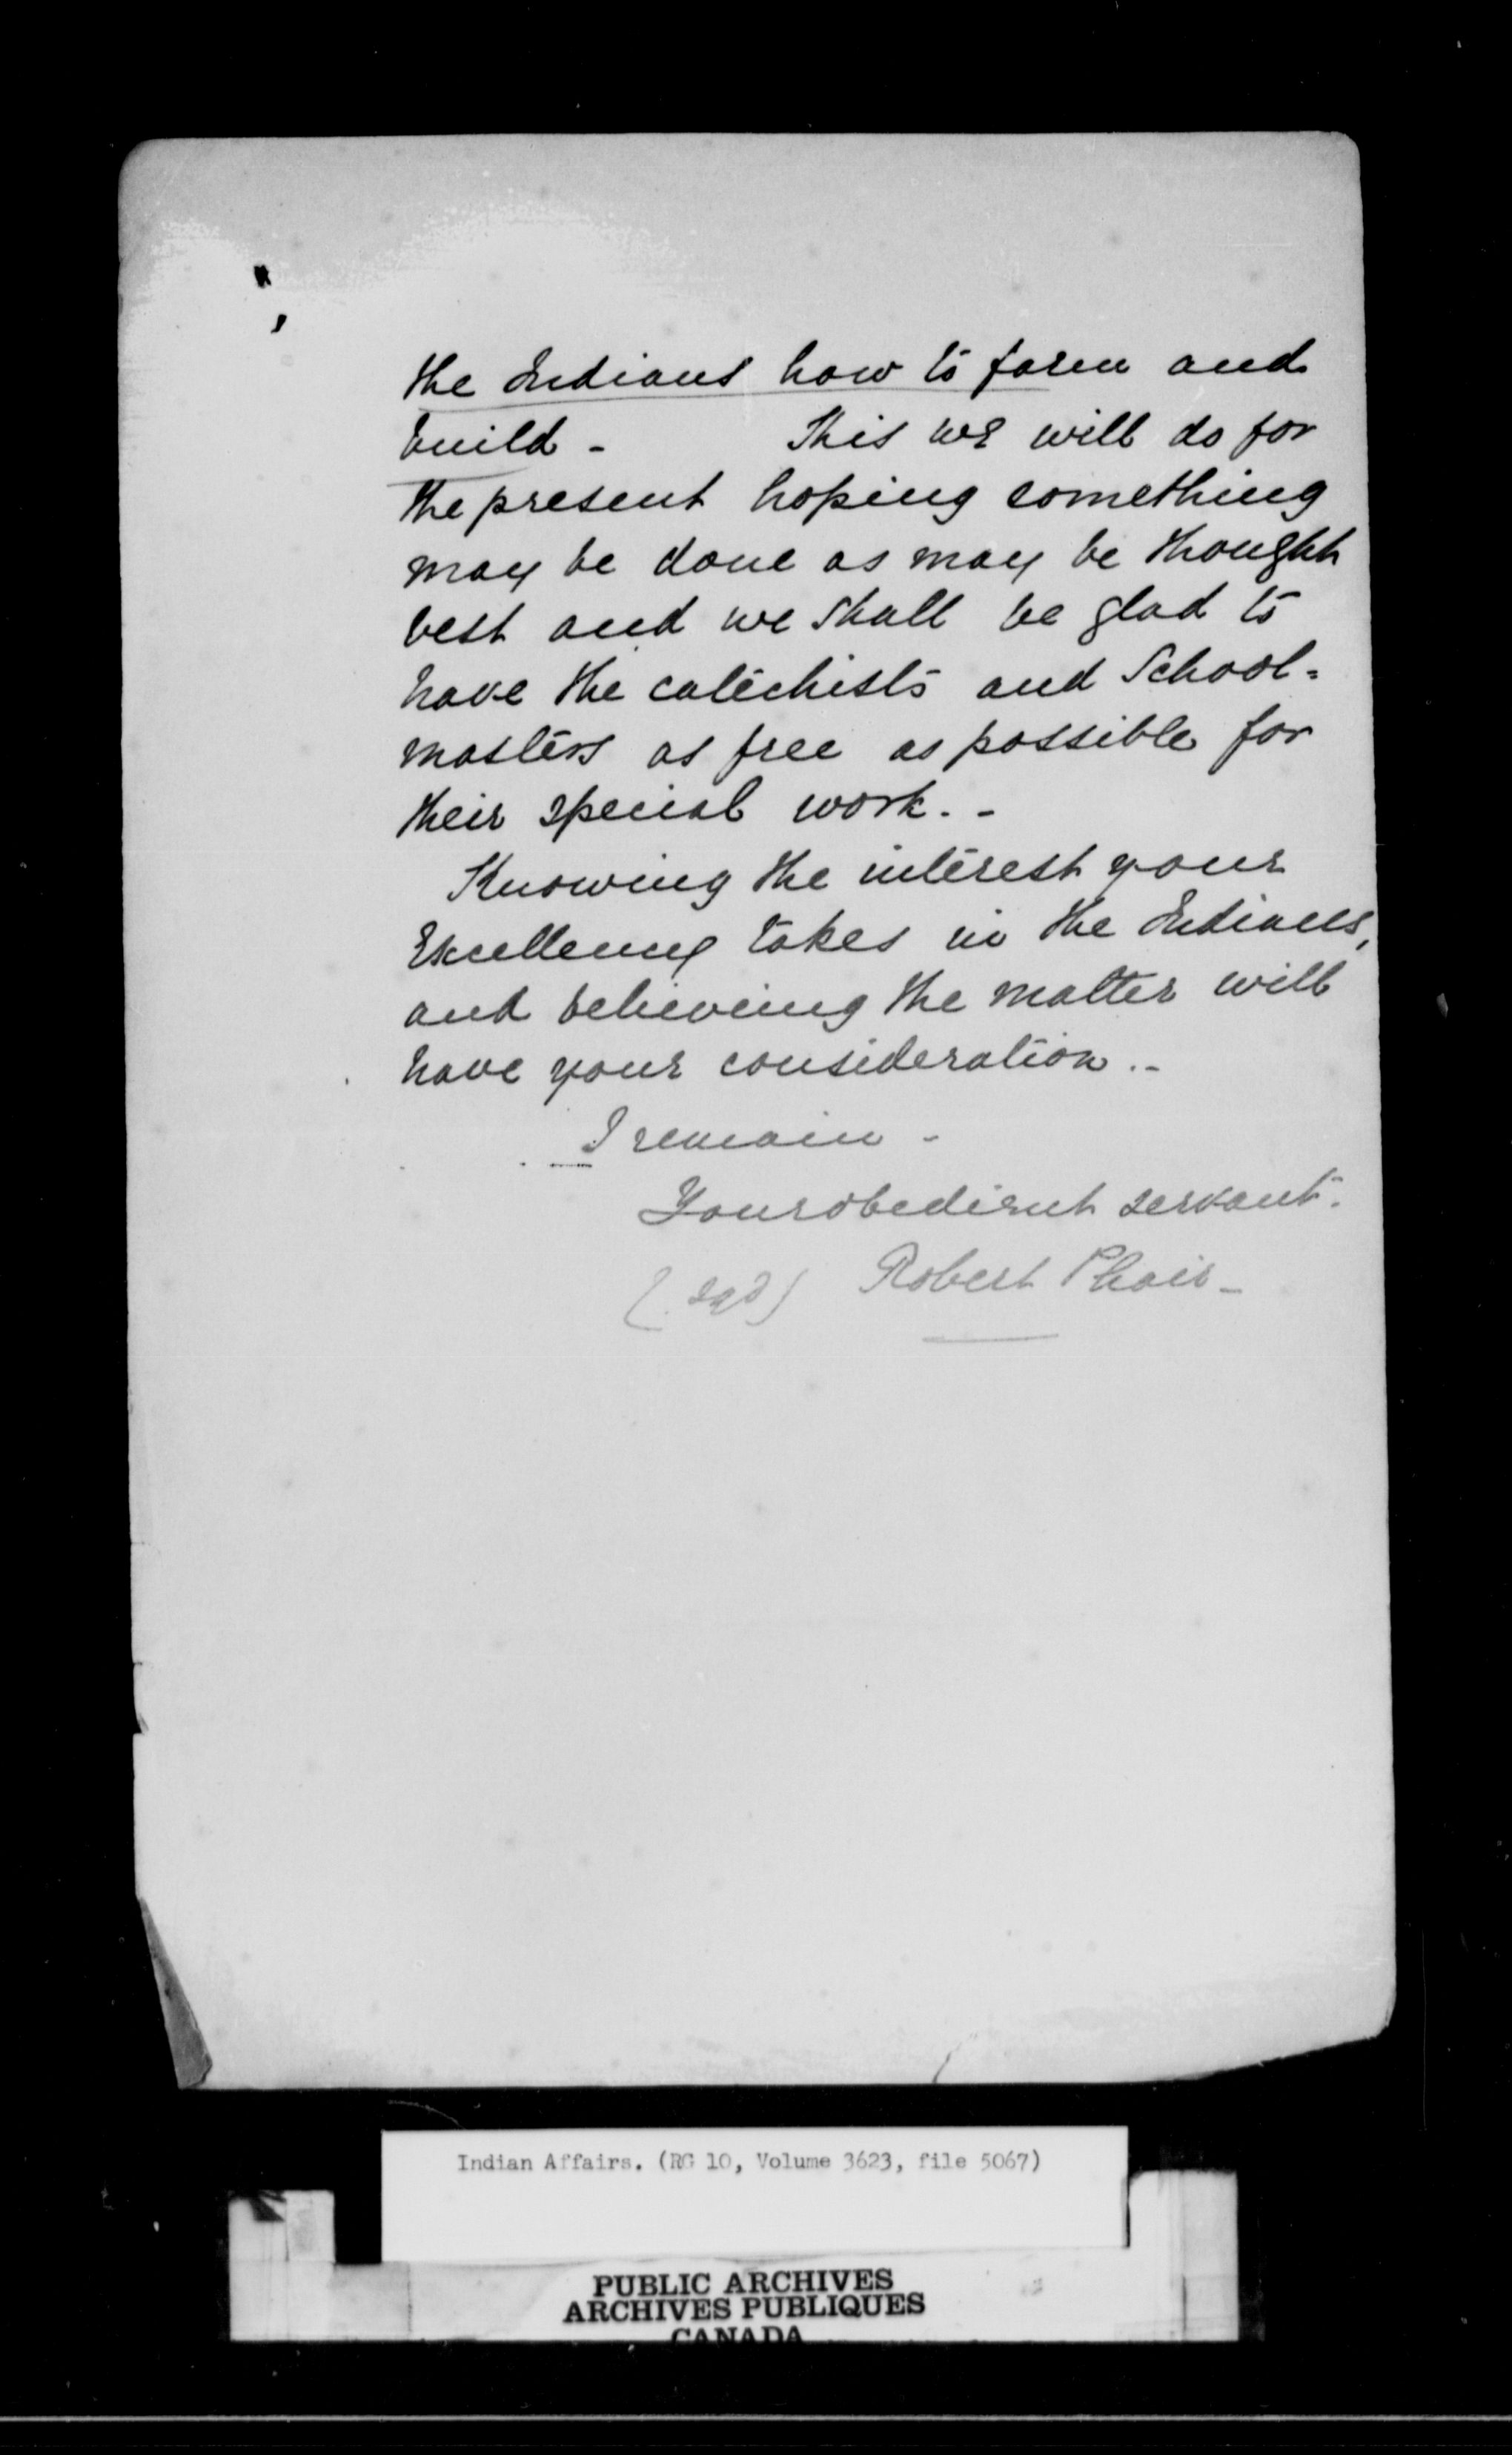 the Indians how to farm and
build - This we will do for
the present hoping something
may be done as may be thought
best and we shall be glad to
have the catechists and School=
masters as free as possible for
their special work. -
Knowing the interest your
Excellency takes in the Indians,
and believing the matter will
have your consideration. -
I remain -
Your obedient servant.
(sgd) Robert Phair -
Indian Affairs. (RG 10, Volume 3623, file 5067)
PUBLIC ARCHIVES
ARCHIVES PUBLIQUES
CANADA